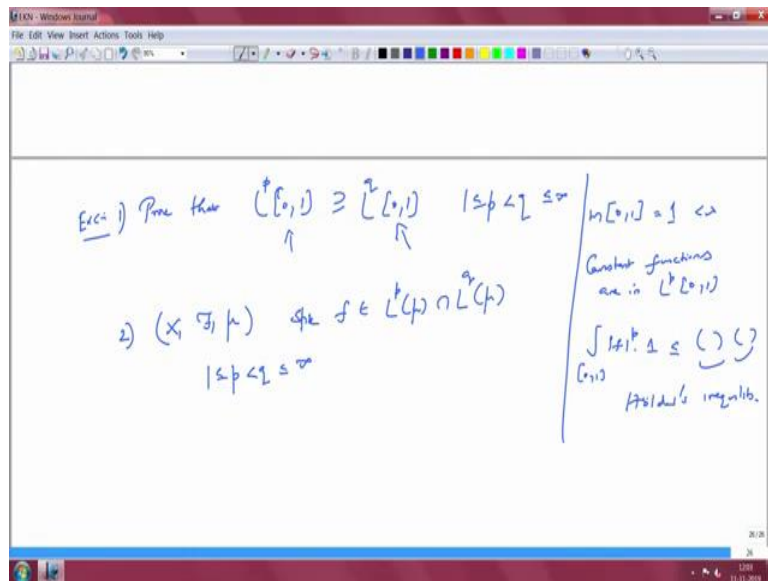 LKN - Windows Journal
File Edit View Insert Actions Tools Help
Exc:- 1) Prove that L^p[0,1] ⊇ L^q[0,1] 1≤p<q≤∞
2) (X, F, μ) Spse f ∈ L^p(μ) ∩ L^q(μ)
1≤p<q≤∞
m[0,1] = 1 <∞
Constant functions
are in L^p[0,1]
∫|f|^p. 1 ≤ ( ) ( )
[0,1]
Hölder's inequalib.
26/26
26
12:03
11-11-2019